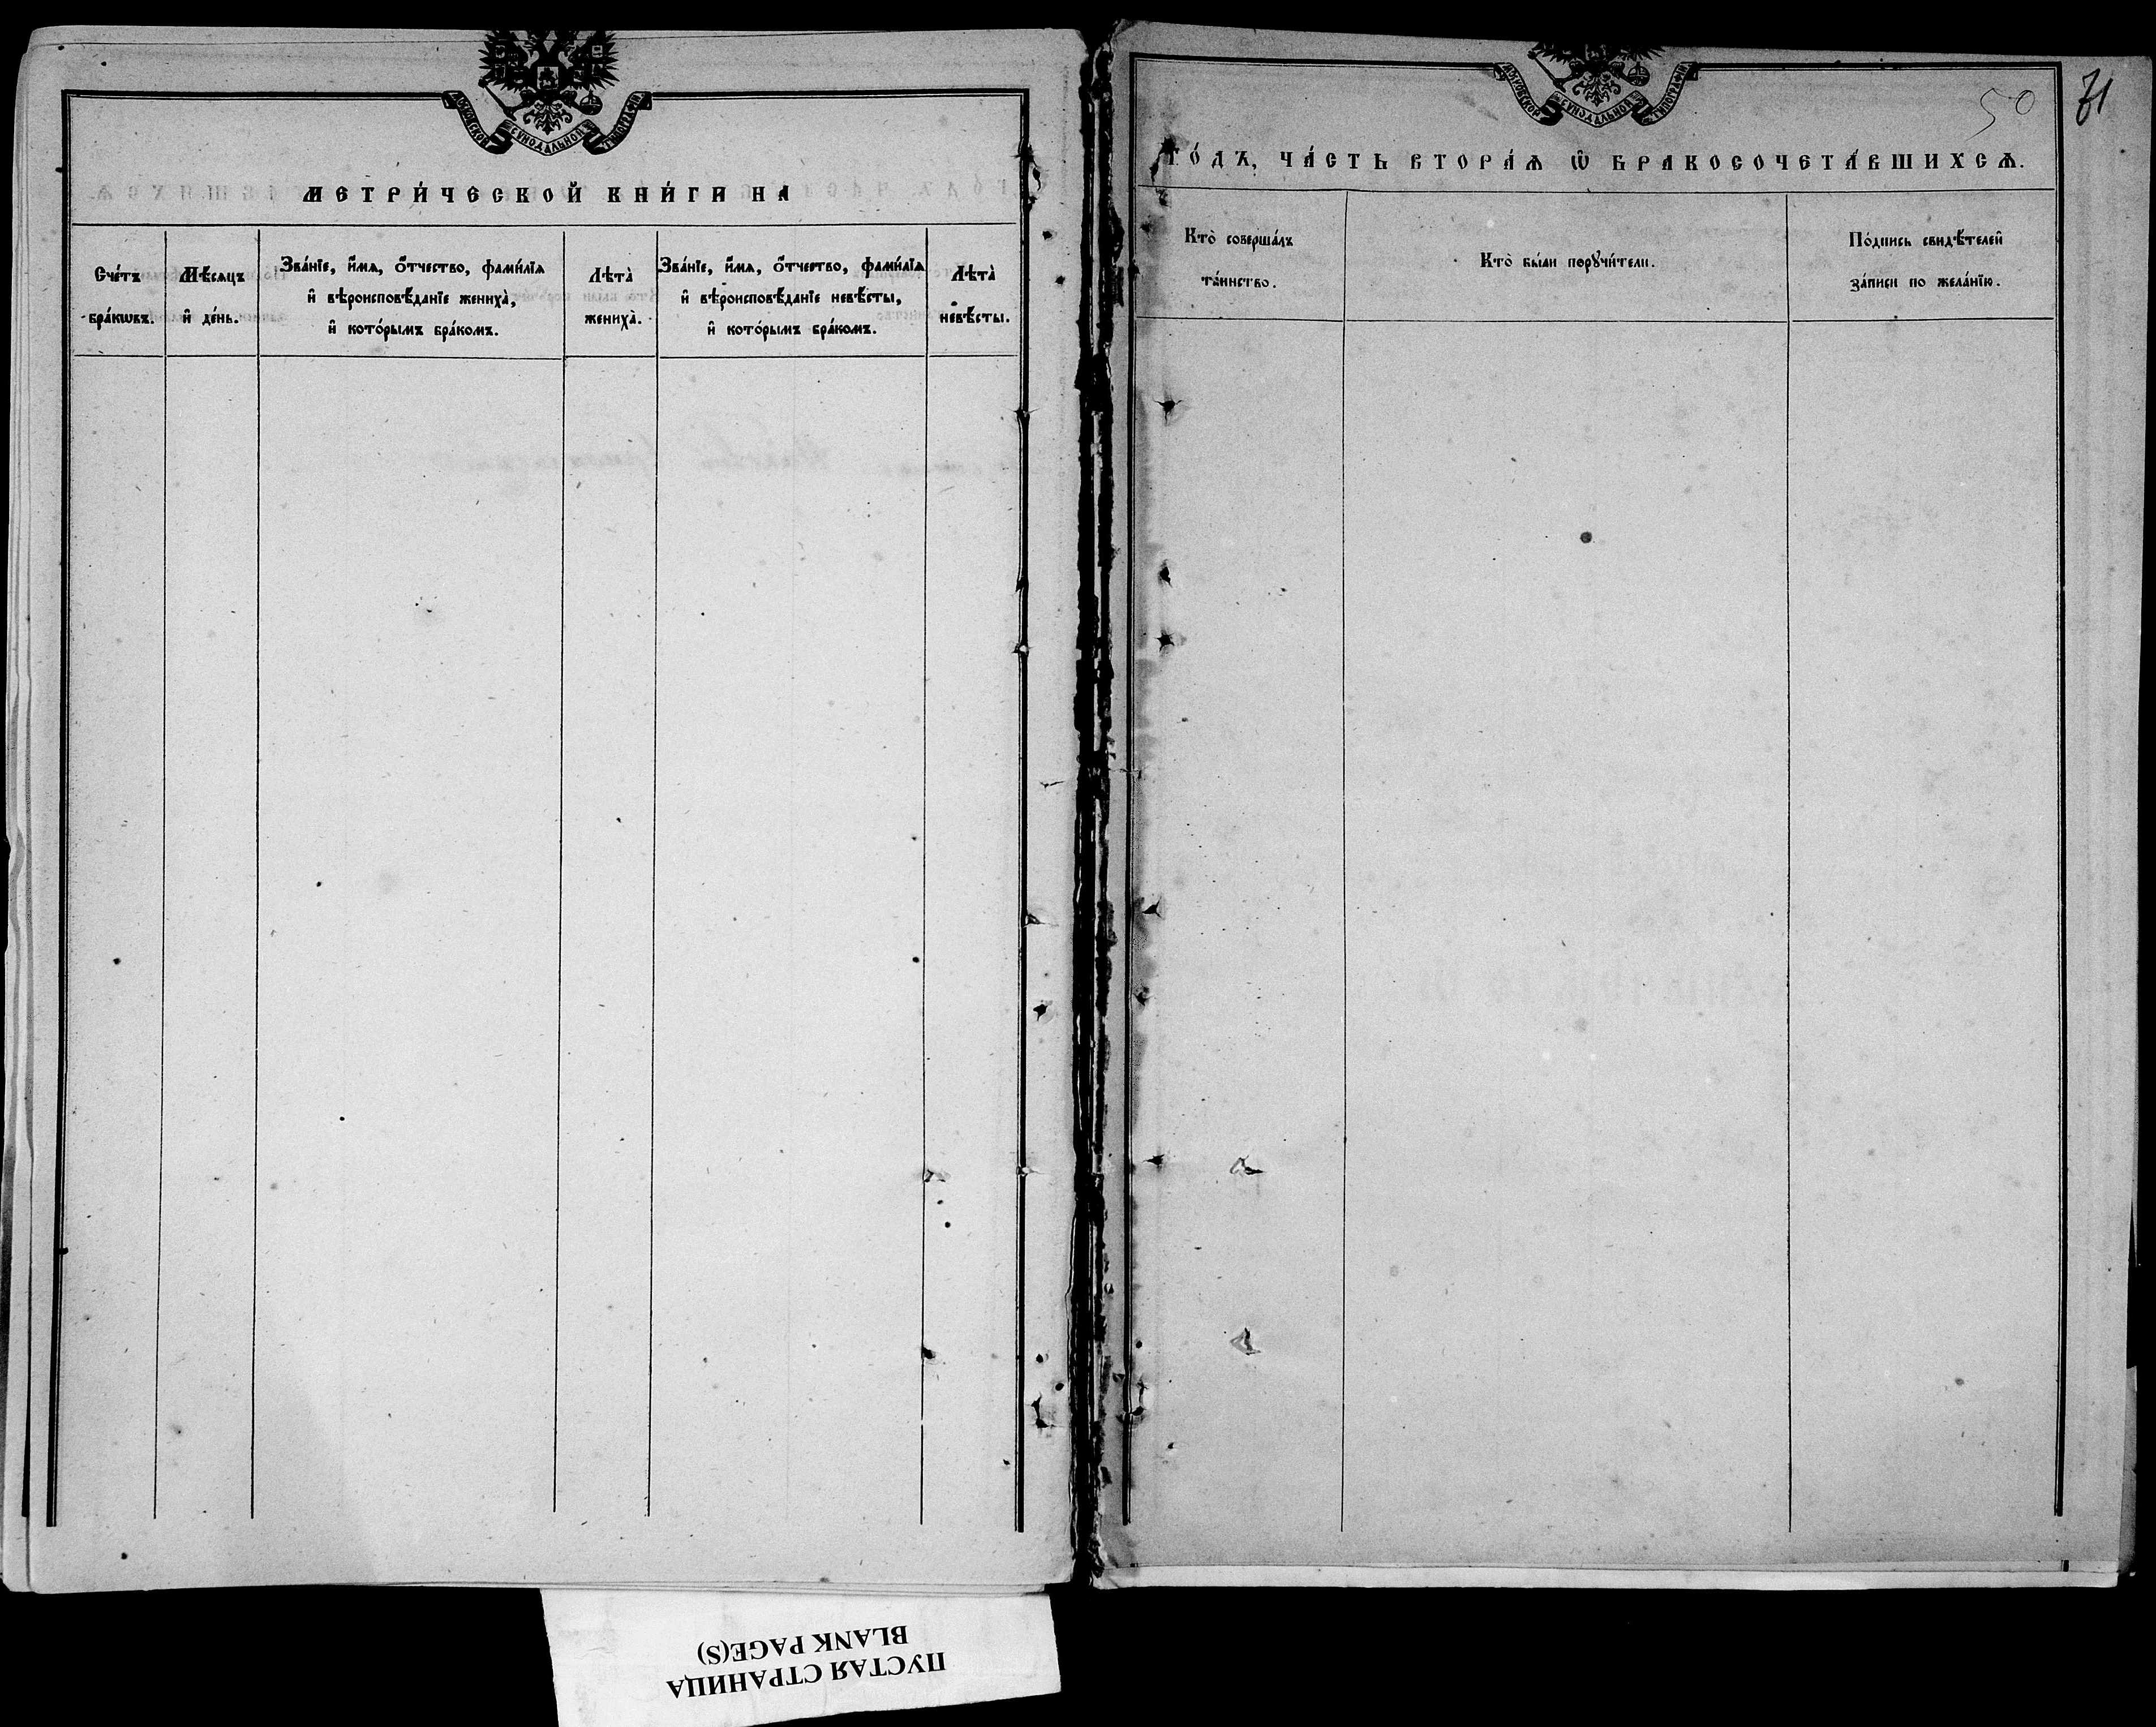 МОСКОВСКОЙ СУНОДАЛЬНОЙ ТИПОГРАФІИ
МЕТРИ́ЧЕСКОЙ КНИ́ГИ НА
Сче́тъ
бра́кѡвъ.
Мѣ́сяцъ
и҆ де́нь.
Зва́нїе, и҆́мѧ, ѻ҆́тчество, фами́лїѧ
и҆ вѣроисповѣ́данїе жениха̀,
и҆ кото́рымъ бра́комъ.
Лѣта̀
жениха̀.
Зва́нїе, и҆́мѧ, ѻ҆́тчество, фами́лїѧ
и҆ вѣроисповѣ́данїе невѣ́сты,
и҆ кото́рымъ бра́комъ.
Лѣта̀
невѣ́сты.
МОСКОВСКОЙ СУНОДАЛЬНОЙ ТИПОГРАФІИ
50
71
ГО́ДЪ, ЧА́СТЬ ВТОРА́Ѧ Ѡ҆ БРАКОСОЧЕТА́ВШИХСѦ.
Кто̀ соверша́лъ
та́инство.
Кто̀ бы́ли пορꙋчи́тели.
По́дпись свидѣ́телей
за́писи по жела́нїю.
ПУСТАЯ СТРАНИЦА
BLANK PAGE(S)